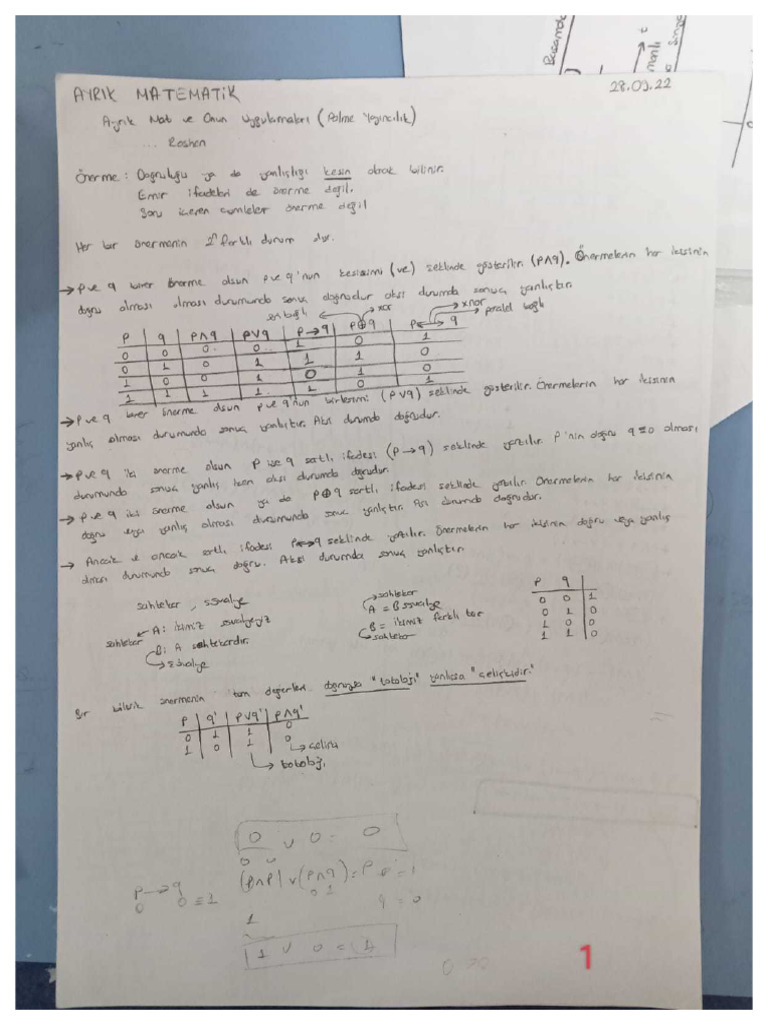 AYRIK MATEMATİK
28.09.22
Ayrık Mat ve Onun Uygulamaları (Palme Yayıncılık)
... Roshen
Önerme: Doğruluğu ya da yanlışlığı kesin olarak bilinir.
Emir ifadeleri de önerme değil.
Soru içeren cümleler önerme değil
Her bir önermenin 2ⁿ farklı durum olur.
→ p ve q birer önerme olsun p ve q'nun kesişimi (ve) şeklinde gösterilir. (p∧q). Önermelerin her ikisinin
doğru olması olması durumunda sonuç doğrudur aksi durumda sonuç yanlıştır.
xor xnor
paralel bağlı
p q p∧q p∨q p→q p⊕q p↔q
0 0 0 0 1 0 1
0 1 0 1 1 1 0
1 0 0 1 0 1 0
1 1 1 1 1 0 1
→ p ve q birer önerme olsun p ve q'nun birleşimi (p∨q) şeklinde gösterilir. Önermelerin her ikisinin
yanlış olması durumunda sonuç yanlıştır. Aksi durumda doğrudur.
→ p ve q iki önerme olsun p ise q şartlı ifadesi (p→q) şeklinde yazılır. p'nin doğru q≡0 olması
durumunda sonuç yanlış iken aksi durumda doğrudur.
→ p ve q iki önerme olsun ya da p⊕q şartlı ifadesi şeklinde yazılır. Önermelerin her ikisinin
doğru veya yanlış olması durumunda sonuç yanlıştır. Aksi durumda doğrudur.
→ Ancak ve ancak şartlı ifadesi p↔q şeklinde yazılır. Önermelerin her ikisinin doğru veya yanlış
olması durumunda sonuç doğru. Aksi durumda sonuç yanlıştır.
sahtekar, şövalye
A: ikimiz şövalyeyiz
sahtekar
B: A sahtekardır.
şövalye
sahtekar
A = B şövalye
B = ikimiz farklı tür
sahtekar
p q
0 0 1
0 1 0
1 0 0
1 1 0
Bir bileşik önermenin tüm değerleri doğruysa "totoloji" yanlışsa "çelişkidir."
p q' p∨q' p∧q'
0 1 1 0
1 0 1 0
çelişki
totoloji
0 ∨ 0 = 0
(p∧p) ∨ (p∧q) = p
0 1
q = 0
p→q
0 0 ≡ 1
1
1 ∨ 0 = 1
1